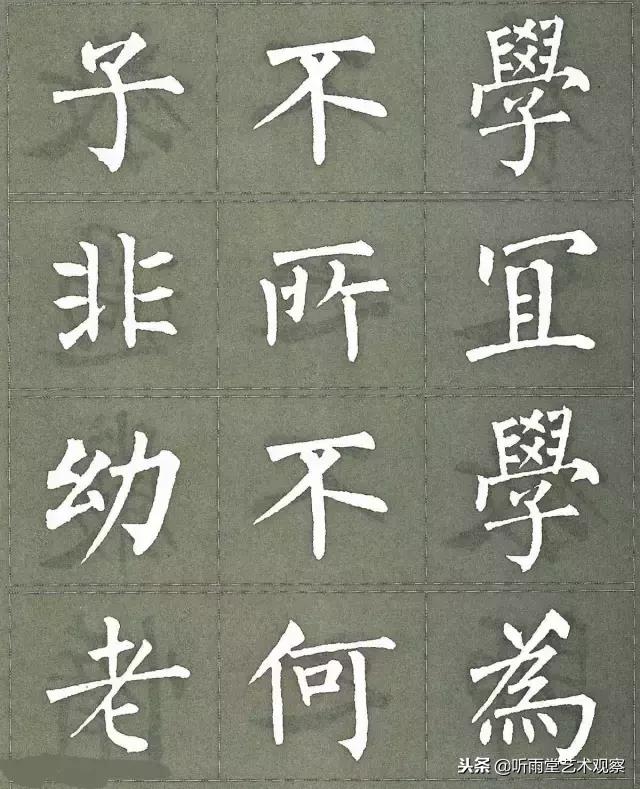 子不學
非所冝
幼不學
老何為
头条 @听雨堂艺术观察